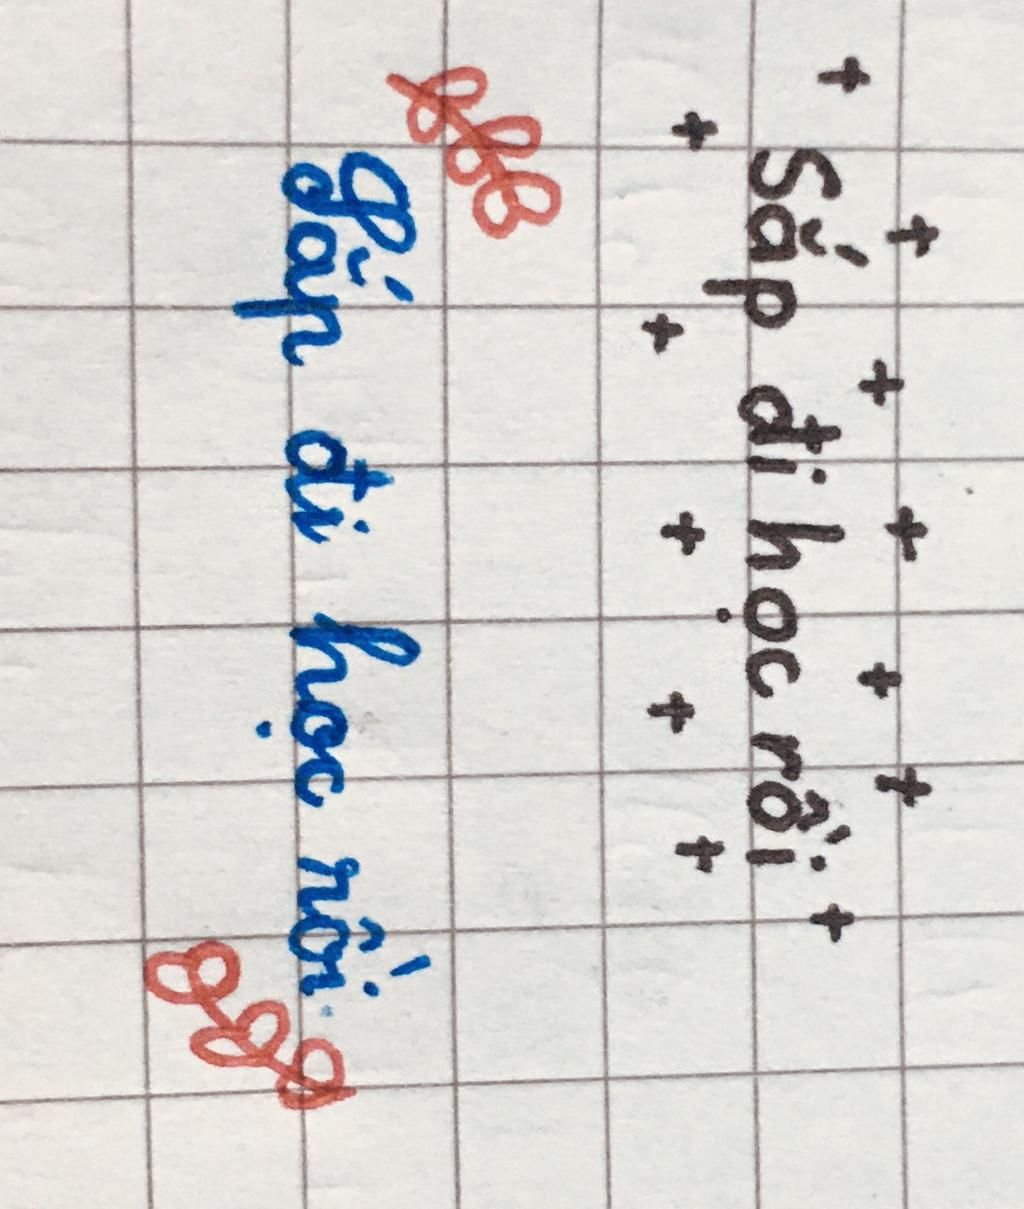 Sắp đi học rồi
Sắp đi học rồi